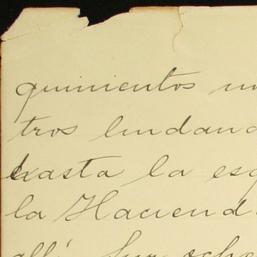 quinientos
tros lindand
hasta la esq
la Haciend
allí Sur ocho